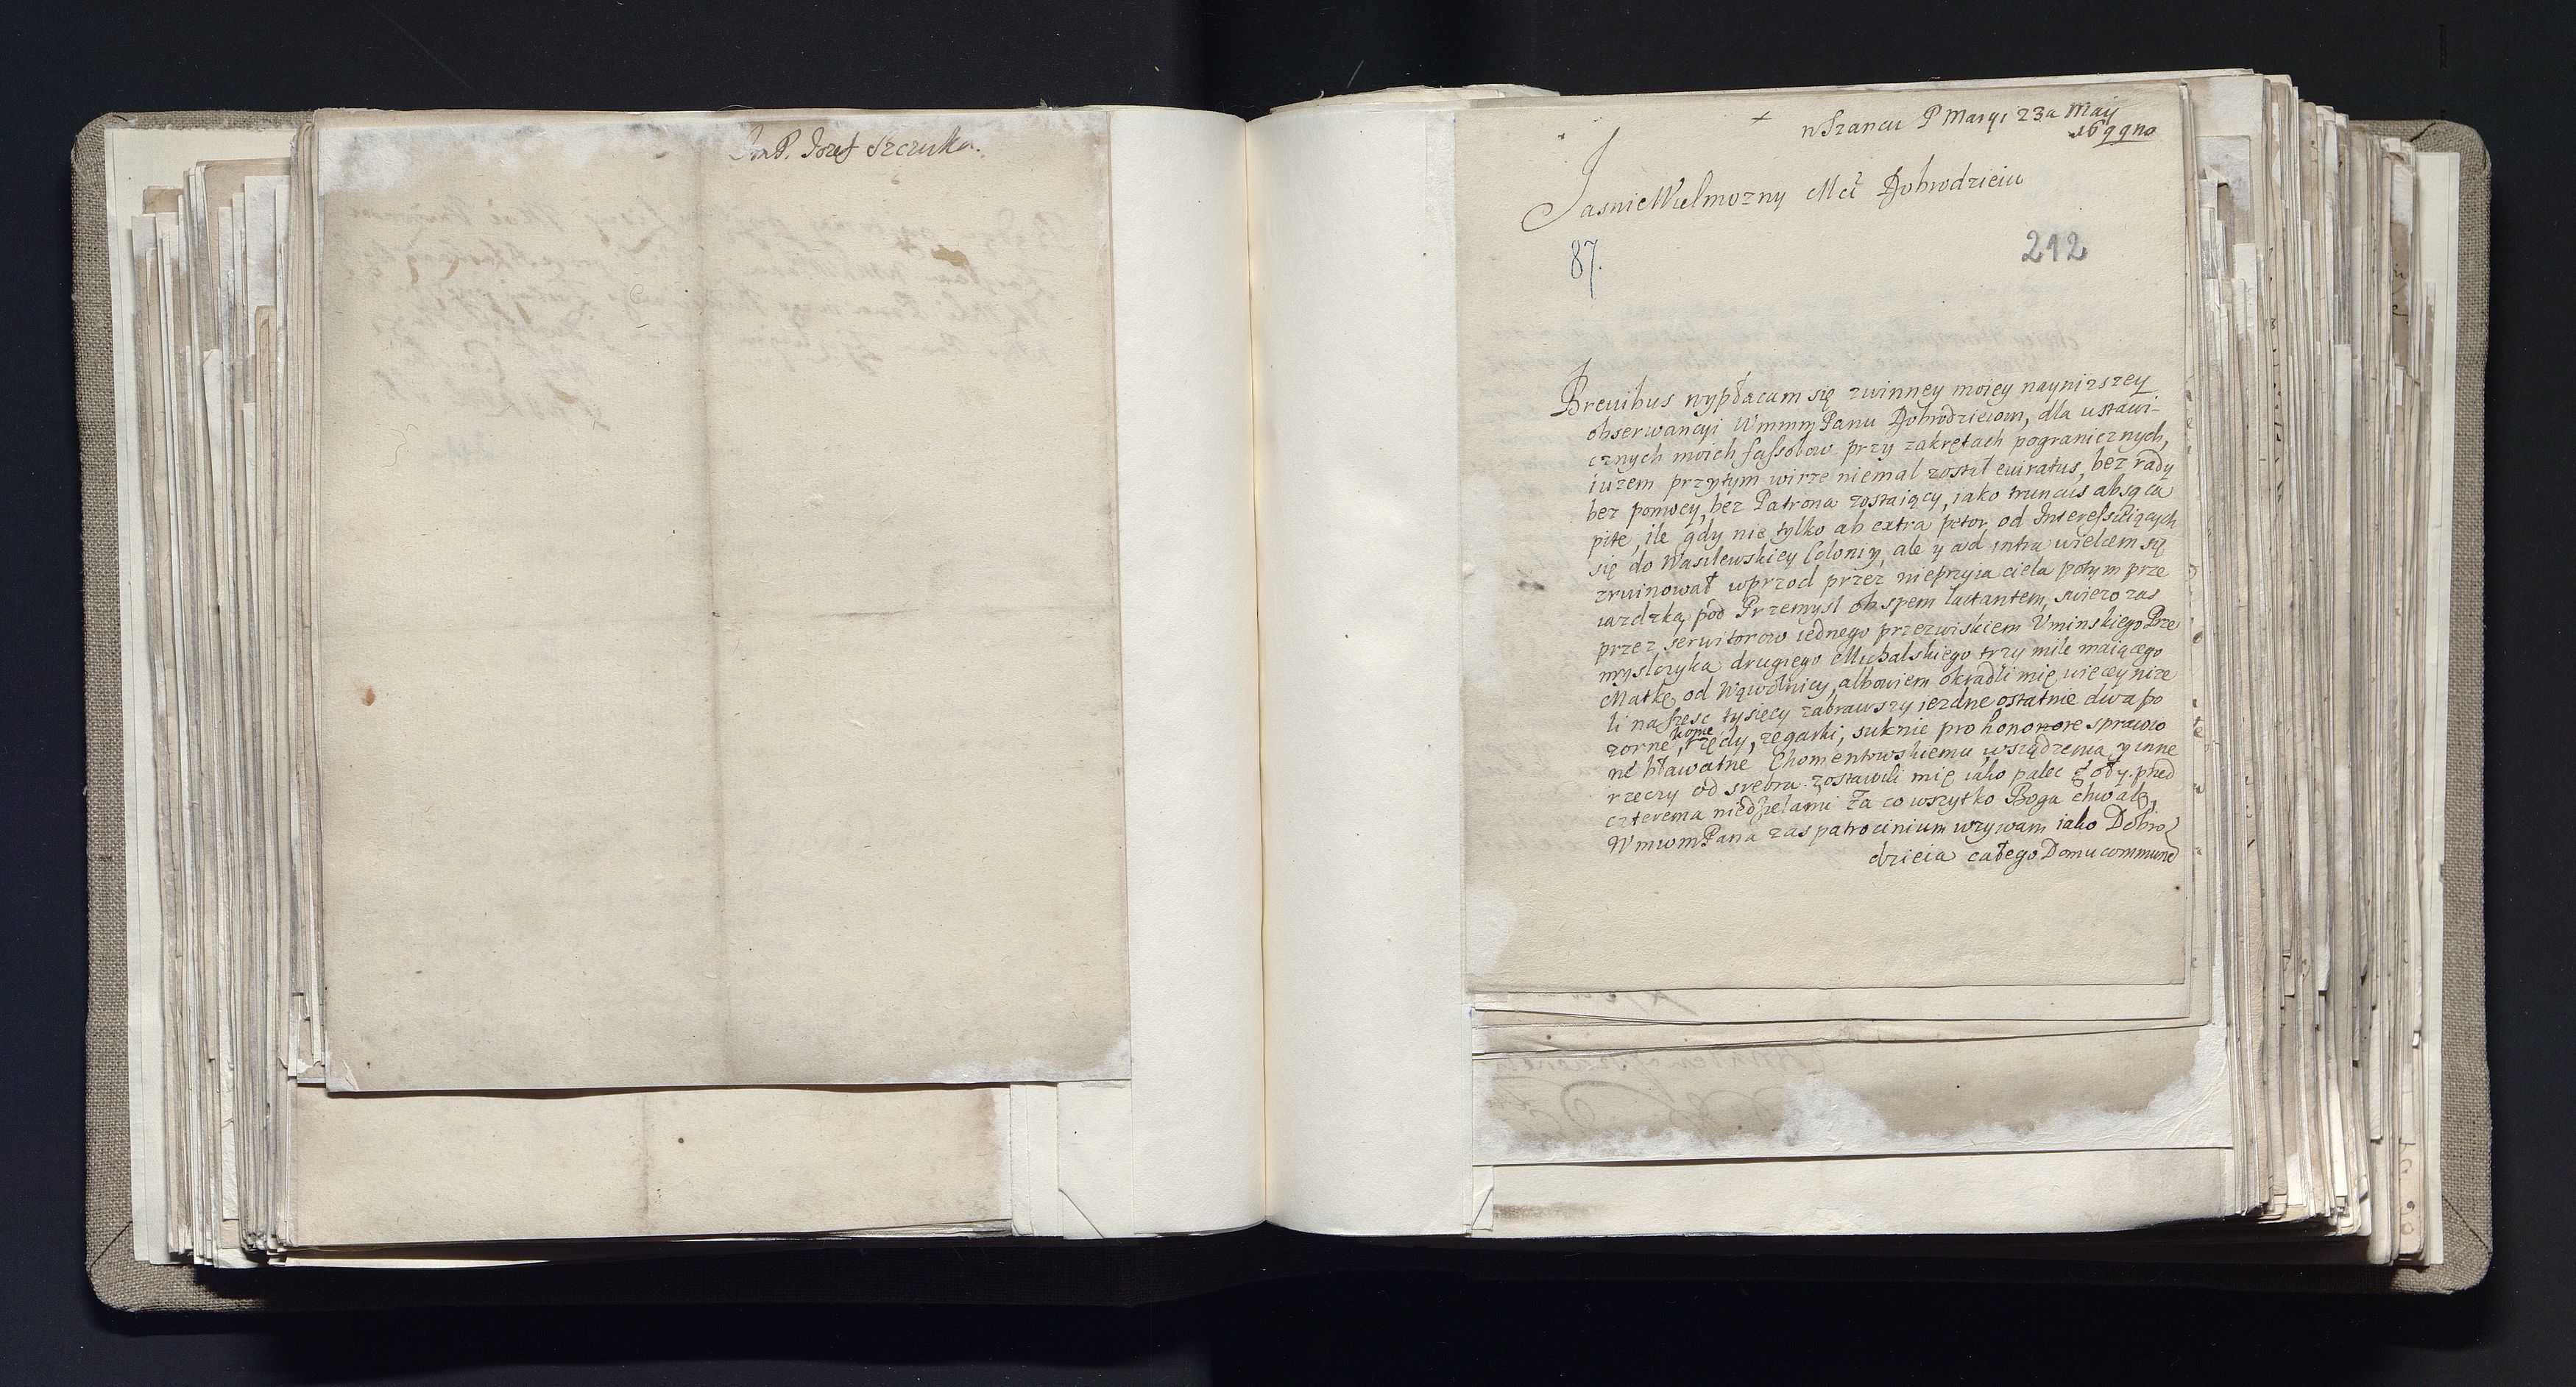 ImP. Jozef Szczuka.
+ w Szancu P Maryi 23a Maij
1699no
JasnieWielmozny Mci Dobrodzieiu
87.
212
Brevibus wypłacam się zwinney moiey naynizszey
obserwancyi Wmmm Panu Dobrodzieiowi, dla ustawi-
cznych moich fassolow przy zakrętach pogranicznych,
iuzem przytym wirze niemal zostal eviratus, bez rady
bez pomocy, bez Patrona zostaiący, iako truncus absq ca
pite, ile gdy nie tylko ab extra od Interessuiących
się do Wasilewskiey Coloniy, ale y ad intra wielcem się
zruinował wprzod przez nieprzyiaciela potym prze
iazdzką pod Przemysl ob spem lactantem, swiezo zas
przez serwitorow iednego przezwiskiem Uminskiego Prze
myslczyka drugiego Michalskiego trzy mile maiącego
Matkę od Wąwolnicy, albowiem okradli mię więcey nize
li na szesc tysięcy zabrawszy iezdne ostatnie dwa po
zorne konie, rzędy, zegarki, suknie pro honorore sprawio
ne bławatne Chomentowskiemu, wsządzenia, y inne
rzeczy od srebra. zostawili mię iako palec przed
czterema niedzielami Za co wszytko Boga chwalę,
WmwmPana zas patrocinium wzywam iako Dobro
dzieia całego Domu commune